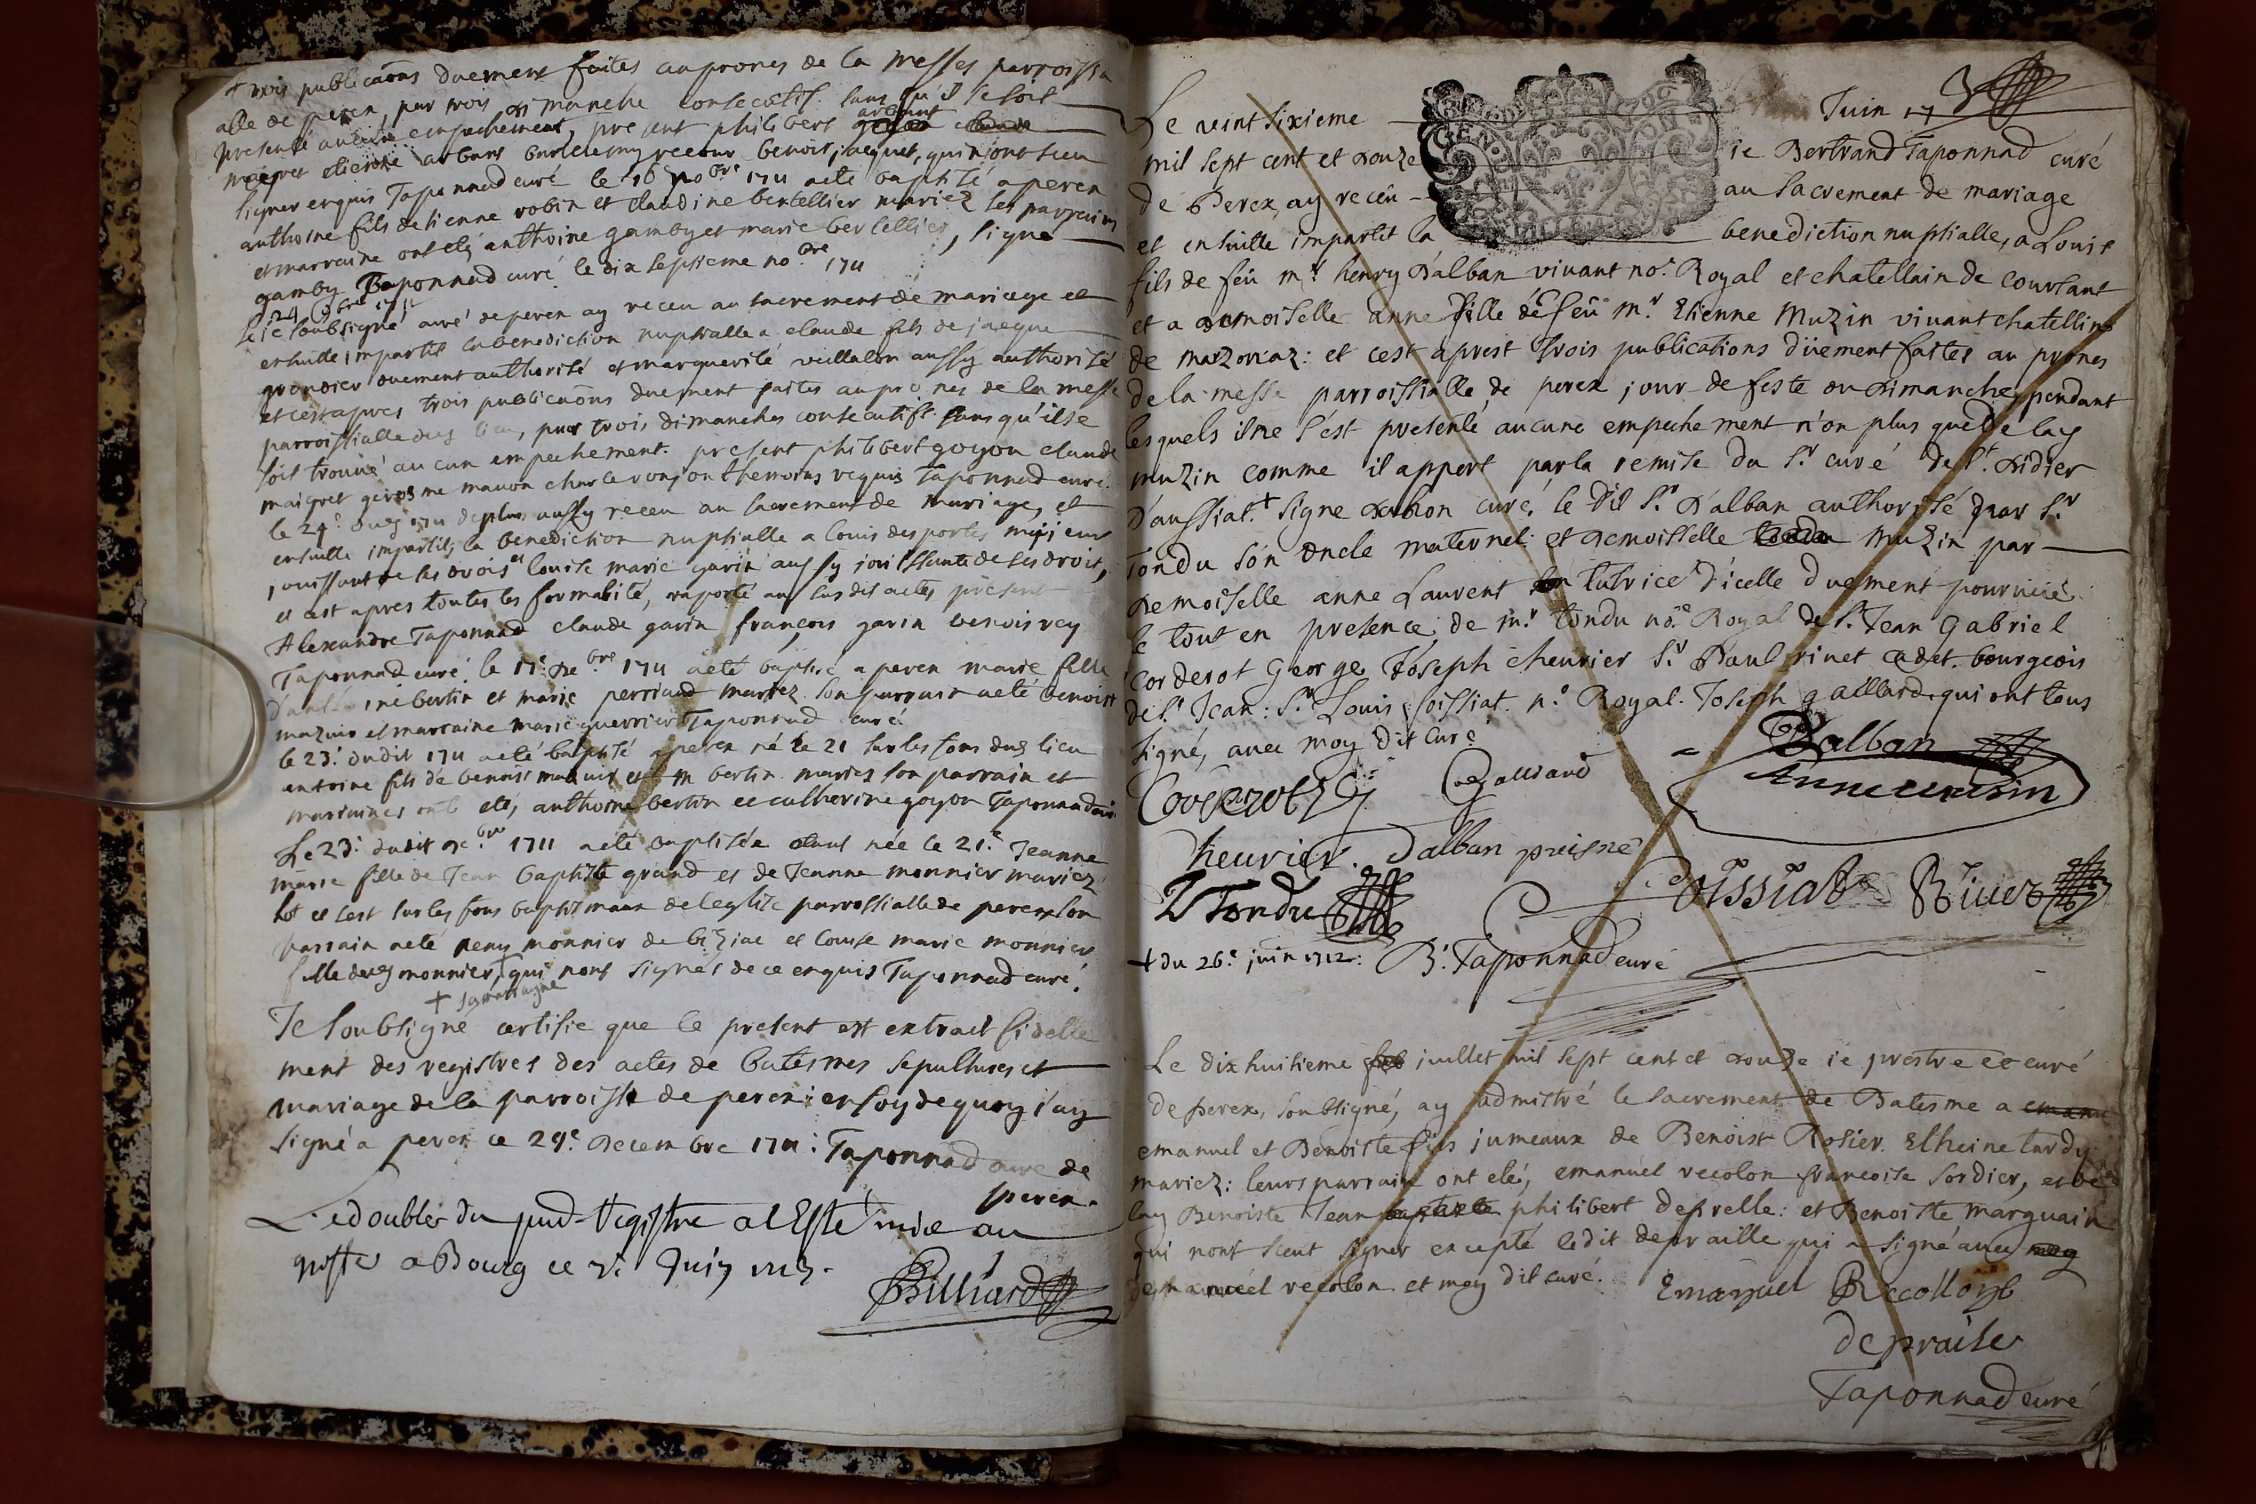 trois publicaõns duement faites aux prones de la messes parroissi
alle de perex, par trois dimanche consecutif sans qu'il se soit
presenté aucune empechement, present philibert
maigret etienne arbant barthelemy recour benoit jacquet, qui n'ont sceu
signer enquis Taponnad curé le 16 nobre 1711 a eté baptisé a perex
anthoine fils detienne robin et claudine bertellier mariez les parrains
et marraine ont eté anthoine gamby et marie bertellier, signe
gamby Taponnad curé le dix septieme nobre 1711
le 24 9bre 1711
ie soubsigné curé de perex ay receu au sacrement de mariage et
ensuitte impartit la benediction nuptialle a claude fils de jacque
grondier duement authorisé et marguerite vuillalon aussy authorisé
et cest apres trois publicaõns duement faites au prones de la messe
parroissialle dud lieu, par trois dimanches consecutifs sans qu'il se
soit trouvé aucun empechement. present philibert goyon claude
maigret themoins requis Taponnad curé.
le 24e dud 1711 de plus aussy receu au sacrement de mariage, et
ensuitte impartit, la benediction nuptialle a louis desportes majeur
jouissant de ses drois et louise marie garin aussy jouissante de ses droit,
et cest apres toutes les formalité, raporté au susdit actes present
Alexandre Taponnad claude garin françois garin benois rey
Taponnad curé. le 17e de bre 1711 a eté baptisé a perex marie fille
bertin et marie perriaud mariez son parrain a eté benoist
mazuir et marraine marie guerrier Taponnad curé
le 23e dudit 1711 a eté baptisé a perex né le 21 sur les fons dud lieu
antoine fils de benoist mazuir et m bertin mariez son parrain et
marraines ont eté, anthoine bertin et catherine goyon Taponnad curé
Le 23e dudit xe bre 1711 a eté baptisée etant née le 21e Jeanne
marie fille de Jean baptiste grand et de Jeanne monnier mariez
et cest sur les fons baptismaux de leglise parrossialle de perex son
parrain a eté peny monnier de biziac et louise marie monnier
fille dud monnier, + qui n'ont signés de ce enquis Taponnad curé.
+ sa marraine
Je soubsigné certifie que le present est extrait fidelle
ment des registres des actes de batesmes sepultures et
mariage de la parroisse de perex: en foy de quoy j'ay
signé a perex ce 29e Decembre 1711: Taponnad curé de
perex.
Le double du pnt Registre a Esté mis au
greffe a Bourg ce 7e Juin 1713.
Billiard
GEN
Juin 17
Le vint sixieme
mil sept cent et douze ie Bertrand Taponnad curé
de Perex, ay receu au sacrement de mariage
et ensuitte impartit la benediction nuptialle, a Louis
fils de feu mr henry D'alban vivant nore Royal et chatellain de coursant
et a Demoiselle anne fille de feu mr Etienne Muzin vivant chatellin
de marzonaz: et cest aprest trois publications düement faites au prones
de la messe parroissialle de perex jour de feste ou dimanche, pendant
lesquels il ne s'est presenté aucune empechement n'on plus que de lad
muzin comme il appert par la remise du Sr curé de St Didier
D'aussiat. + signe curé. le Dit Sr D'alban authorisé par Sr
Tondu son oncle maternel: et Demoisselle tondu muzin par
Demoiselle anne Laurent tutrice D'icelle duement pourvüe.
le tout en presence, de mr tondu nore Royal de St Jean Gabriel
corderot George Joseph cheurier Sr Paul rivet cadet bourgeois
de St Jean: Sr Louis Poissiat no Royal. Joseph gailliard, qui ont tous
signé, avec moy Dit curé
Dalban
Galliard
Anne muzin
Coverrot
Cheurier. Dalban puisné
L Tondu
Poissiat Rivet
+ du 26e juin 1712: B. Taponnad curé
Le dix huitieme feb juillet mil sept cent et douze ie prestre et curé
de perex, soubsigné, ay admistré le sacrement de Batesme a emanu
emanuel et Benoiste fils jumeaux de Benoist Rosier Etheine tardy
mariez: leurs parrain ont eté, emanuel recolon francoise sordier, et de
lad Benoiste Jean baptiste philibert deprelle: et Benoiste marguain
qui n'ont sceut signer excepté ledit depraille qui a signé avec moy
demanuel recolon et moy dit curé. Emanuel Reccollons
depraile
Taponnad curé